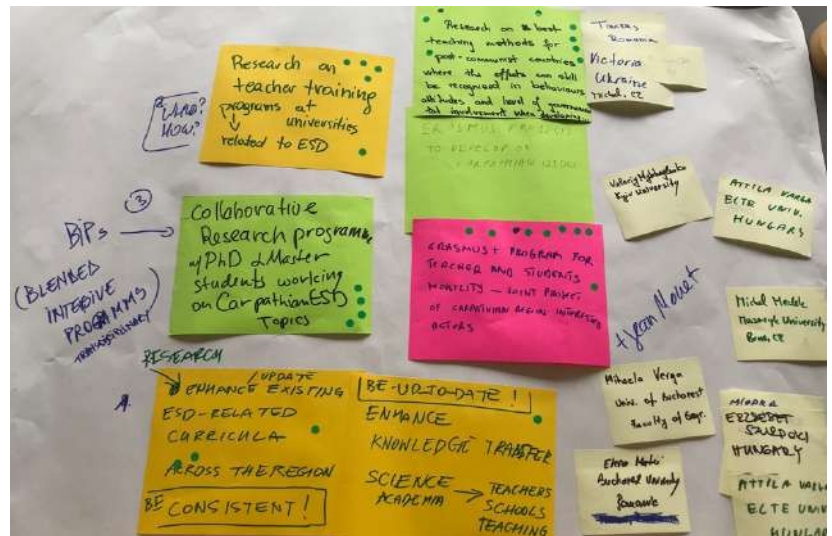 Research on
teacher training
programs at
universities
related to ESD
WHO?
HOW?
Research on best
teaching methods for
post-communist countries
where the effects can still
be recognized in behaviours
attitudes and level of
involvement when
ERASMUS PROJECTS
TO DEVELOP
CARPATHIAN
Romania
Victoria
Ukraine
Michal, CZ
Kyiv University
ATTILA VARGA
ELTE UNIV.
HUNGARY
3
BIPs
(BLENDED
INTESIVE
PROGRAMMS)
Collaborative
Research programme
w/ PhD & Master
students working
on Carpathian ESD
Topics
ERASMUS+ PROGRAM FOR
TEACHER AND STUDENTS
MOBILITY – JOINT PROJECT
OF CARPATHIAN REGION INTERESTED
ACTORS
+ Jean Monet
Michal Medek
Masaryk University
Brno, CZ
RESEARCH
/ UPDATE
ENHANCE EXISTING
ESD-RELATED
CURRICULA
ACROSS THE REGION
BE CONSISTENT!
BE-UP-TO-DATE!
ENHANCE
KNOWLEDGE TRANSFER
SCIENCE
ACADEMIA
TEACHERS
SCHOOLS
TEACHING
Mihaela Verga
Univ. of Bucharest
Faculty of Geogr.
Bucharest University
Romania
ERZSEBET
SZURDOKI
HUNGARY
ATTILA VARGA
ELTE UNIV
HUNGAR